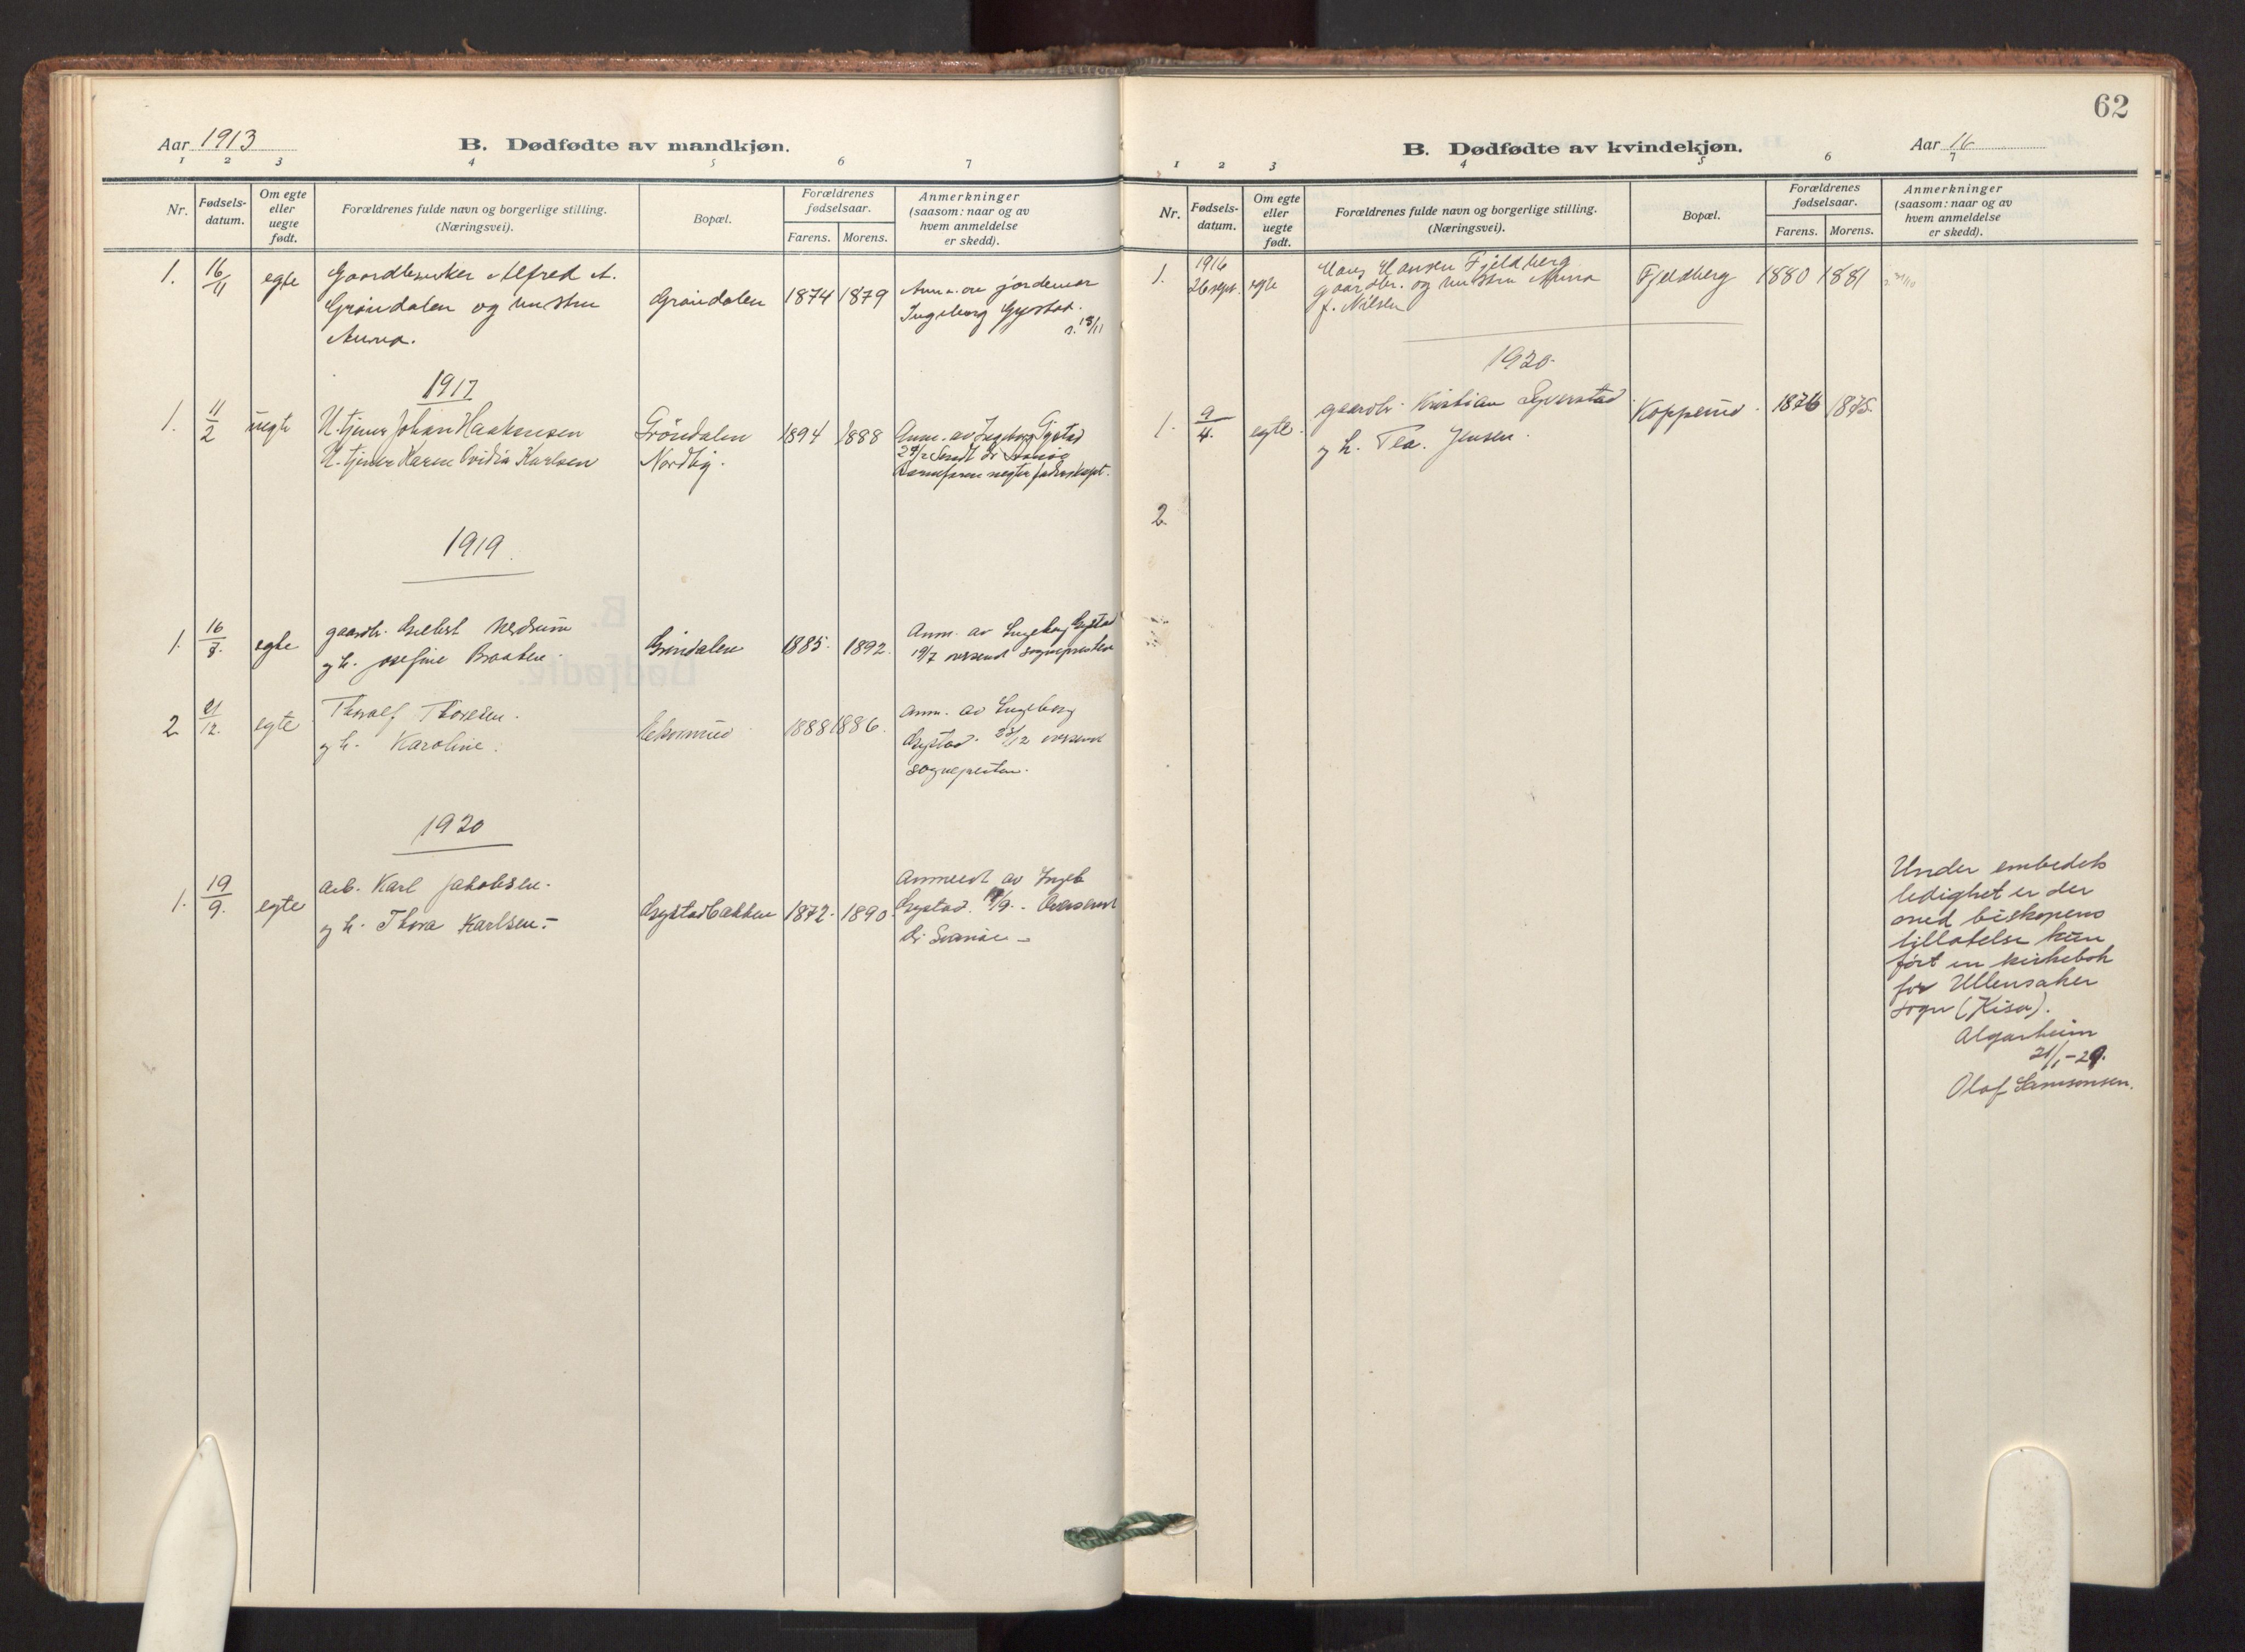 Aar 1913
B. Dødfødte av mandkjøn.
1 2 3 4 5 6 7
Nr.
Fødsels-
datum.
Om egte
eller
uegte
født.
Forældrenes fulde navn og borgerlige stilling.
(Næringsvei).
Bopæl.
Forældrenes
fødselsaar.
Farens. Morens.
Anmerkninger
(saasom: naar og av
hvem anmeldelse
er skedd).
1. 16/11 egte Gaardbruker Alfred A.
Grøndalen og hustru
Anna.
Grøndalen 1874 1879
Anm. av jordemor
Ingeborg Gystad.
18/11
1917
1. 11/2 uegte U. tjener Johan Haakensen
U. tjener Karen Ovidia Karlsen
Grøndalen
Nordby.
1894 1888
Anm. av Ingeborg Gystad
Sendt Dr
Barnefaren negter faderskapet.
1919
1. 16/7. egte gaardbr. Nedrum
og h. Josefine Braaten.
Grøndalen 1885. 1892.
Anm. av Ingeborg Gystad
19/7 oversendt sognepresten
2 21/12. egte Thoralf Thoresen.
og h. Karoline.
1888 1886.
Anm. av Ingeborg
Gystad. 23/12 oversendt
sognepresten.
1920
1. 19/9. egte arb. Karl Jakobsen.
og h. Thora Karlsen.-
Gystadbakken 1872. 1890.
Anmeldt av Ingeb
Gystad. 19/9. - Oversendt
Dr Svanøe -
62
B. Dødfødte av kvindekjøn.
Aar 16
1 2 3 4 5 6 7
Nr.
Fødsels-
datum.
Om egte
eller
uegte
født.
Forældrenes fulde navn og borgerlige stilling.
(Næringsvei).
Bopæl.
Forældrenes
fødselsaar.
Farens. Morens.
Anmerkninger
(saasom: naar og av
hvem anmeldelse
er skedd).
1. 1916
26 sept. egte Hans Hansen Fjeldberg
gaardbr. og hustru Anna
f. Nilsen
Fjeldberg 1880 1881
1920.
1. 9/4. egte. gaardbr. Kristian
og h. Tea. Jensen.
Kopperud. 1876 1875.
2.
Under embedets
ledighet er der
med biskopens
tillatelse kun
ført en kirkebok
for Ullensaker
sogn (Kisa).
Algarheim
21/1-29.
Olof Samsonsen.